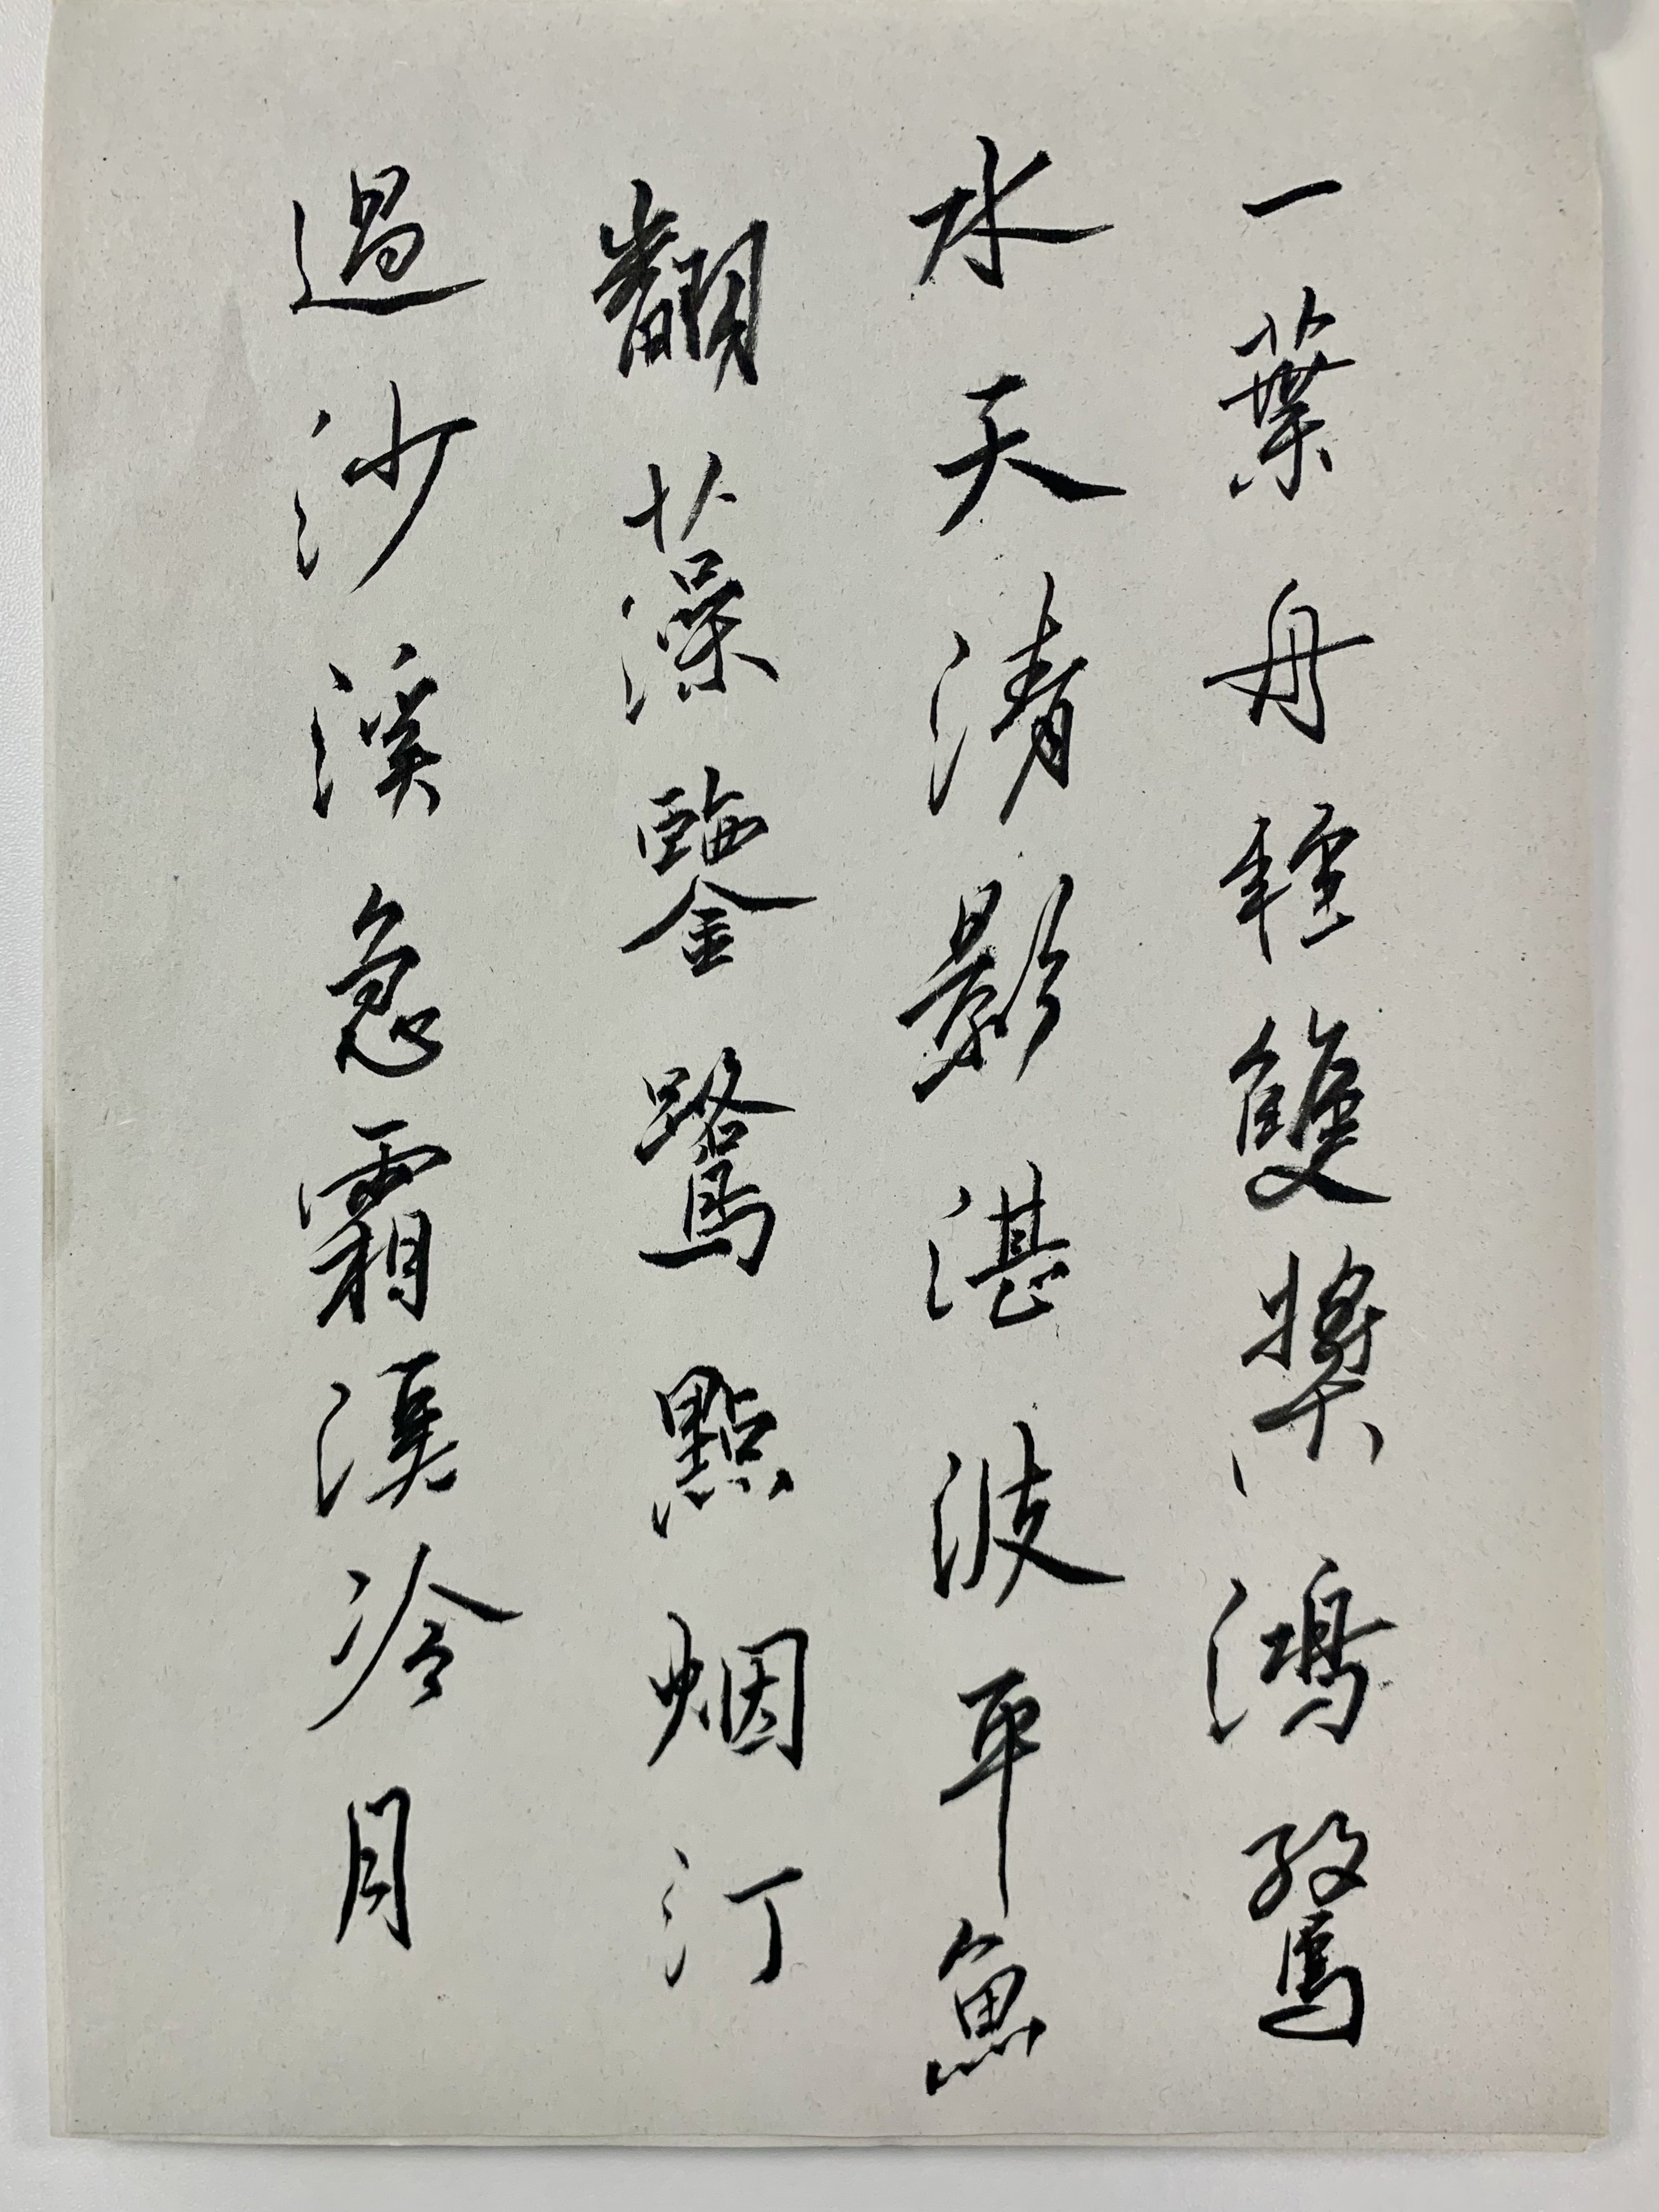 一葉舟輕雙槳鴻驚
水天清影湛波平魚
翻藻鑒鷺點烟汀
過沙溪急霜溪冷月